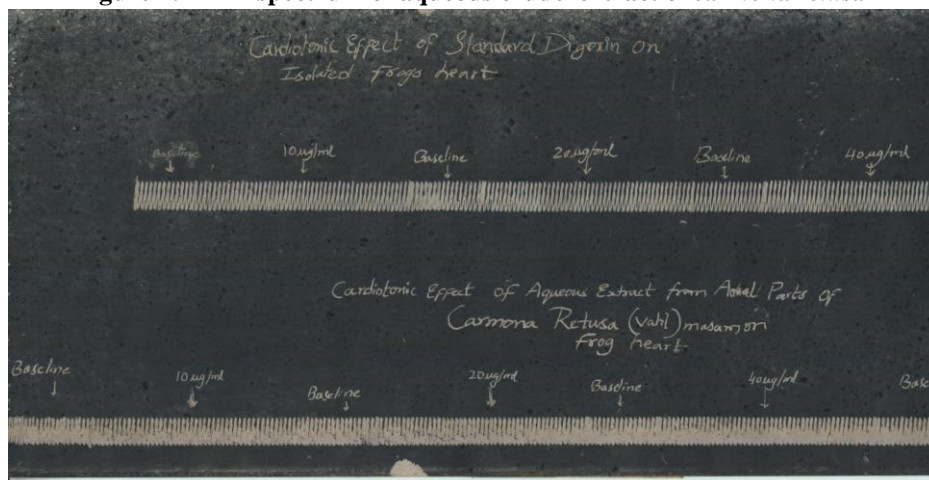 Cardiotonic Effect of Standard Digoxin on
Isolated Frogs heart
Baseline 10 µg/ml Baseline 20 µg/ml Baseline 40 µg/ml
Cardiotonic Effect of Aqueous Extract from Parts of
Carmona Retusa (Vahl) masam on
Frog heart
Baseline 10 µg/ml Baseline 20 µg/ml Baseline 40 µg/ml Base